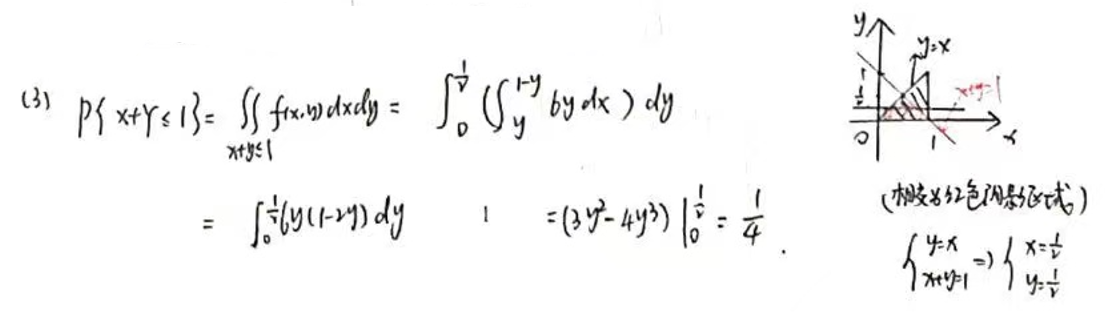 (3) P{X+Y≤1}=∬f(x,y)dxdy=∫₀^(1/2)(∫_y^(1-y) 6y dx)dy
x+y≤1
=∫₀^(1/2) 6y(1-2y)dy =(3y²-4y³)|₀^(1/2)=1/4.
y
y=x
1
1/2
x+y=1
0
1
x
(相交为红色阴影区域)
{y=x x+y=1 => {x=1/2 y=1/2